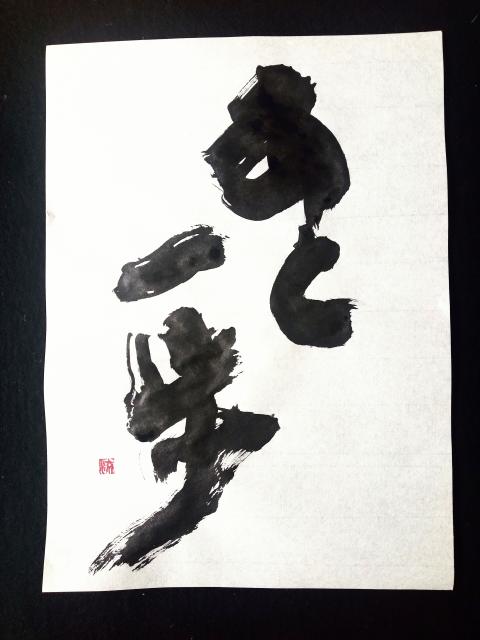 あと
一歩